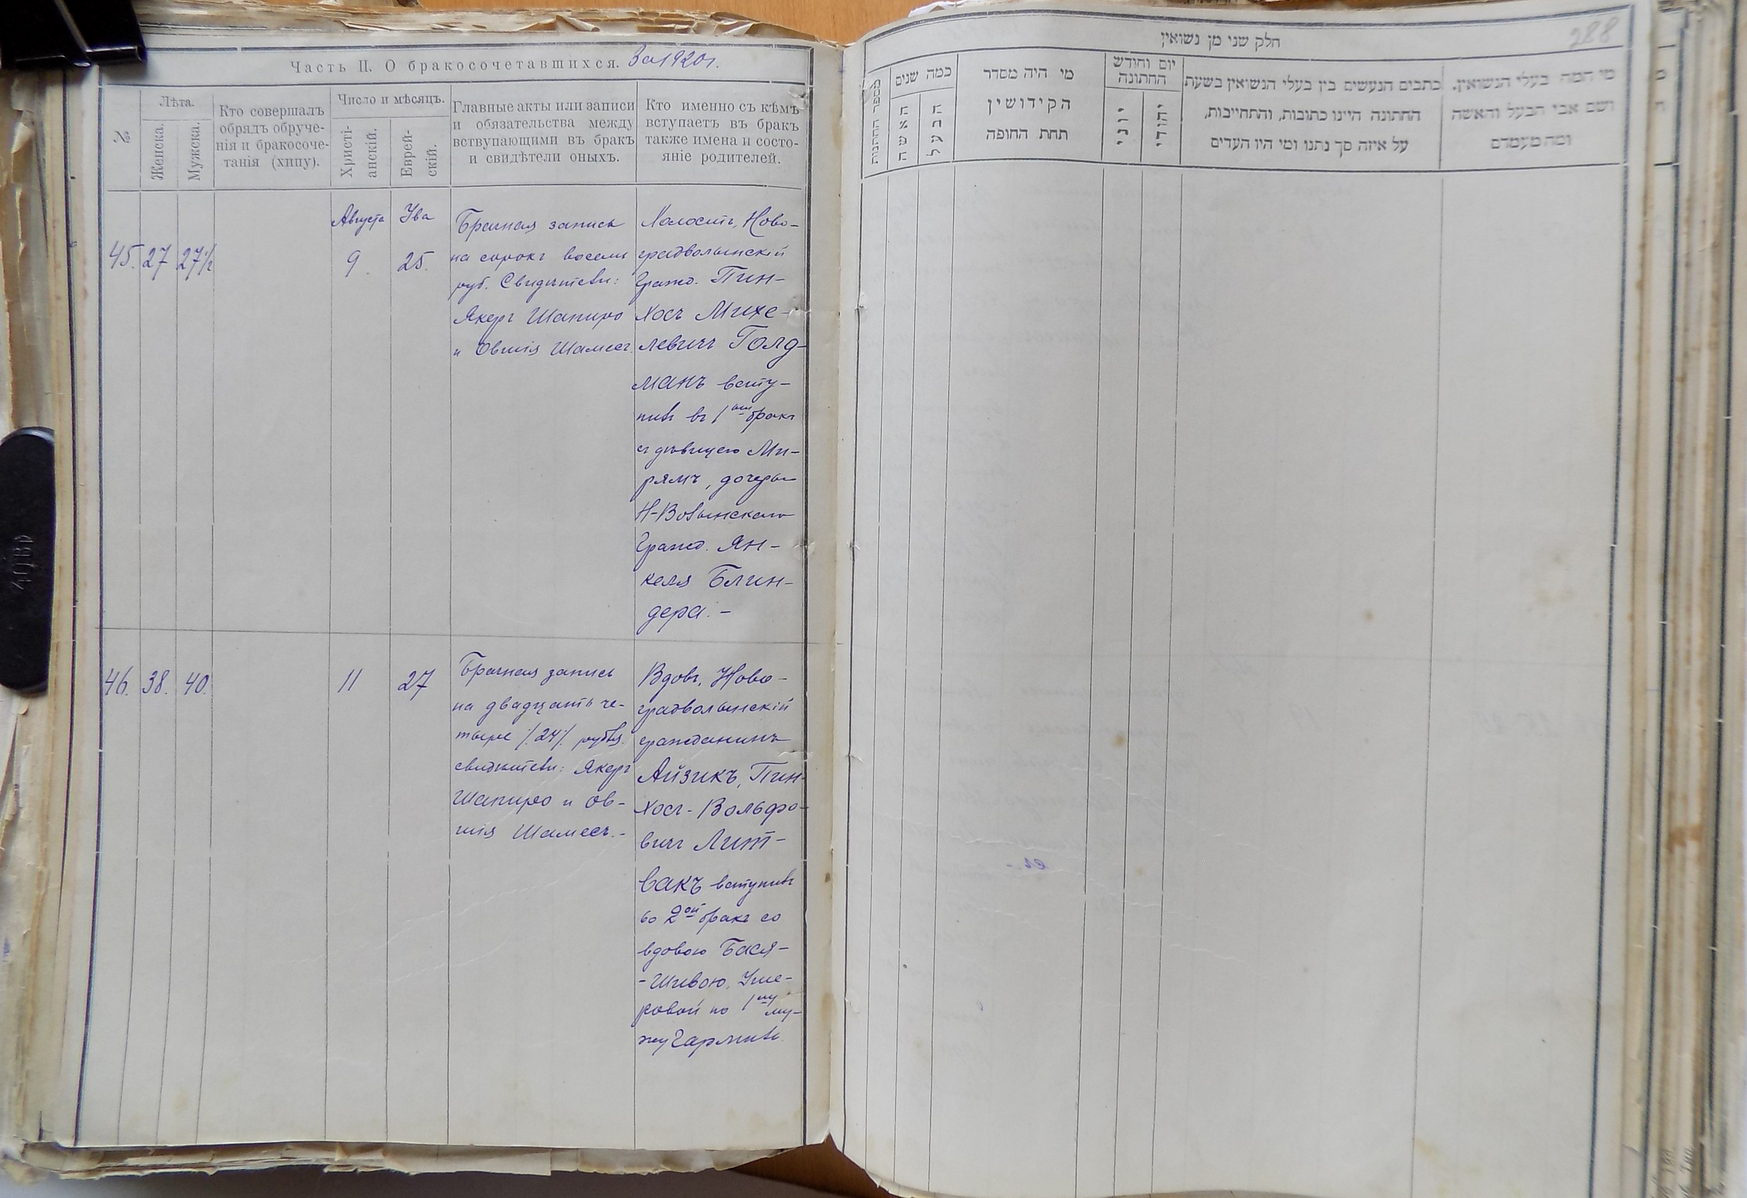 Часть II. О бракосочетавшихся. За 1920 г.
№
Лѣта.
Женска.
Мужска.
Кто совершалъ
обрядъ обруче-
нія и бракосоче-
танія (хипу).
Число и мѣсяцъ.
Христі-
анскій.
Еврей-
скій.
Главные акты или записи
и обязательства между
вступающими въ бракъ
и свидѣтели оныхъ.
Кто именно съ кѣмъ
вступаетъ въ бракъ
также имена и состо-
яніе родителей.
45. 27 27½
Августа
9.
Ува
25.
Брачная запись
на сорокъ восемь
руб. Свидѣтели:
Якеръ Шапиро
и Овшія Шамесъ
Холостъ, Ново-
градволынскій
Гражд. Пин-
хосъ Михе-
левичъ Голд-
манъ всту-
пилъ въ 1ый бракъ
съ дѣвицею Ми-
рямъ, дочерью
Н-Волынскаго
Гражд. Ян-
келя Блин-
дера. -
46. 38. 40.
11
27
Брачная запись
на двадцать че-
тыре /.24/. рубля.
свидѣтели: Якеръ
Шапиро и Ов-
шія Шамесъ. -
Вдовъ, Ново-
градволынскій
гражданинъ
Айзикъ, Пин-
хосъ-Вольфо-
вичъ Лит-
вакъ вступилъ
во 2ой бракъ со
вдовою Бася-
-Шивою,
по 1му му-
жу
חלק שני מן נשואין
288
מספר החתונות
כמה שנים
האשה
הבעל
מי היה מסדר
הקידושין
תחת החופה
יום וחודש
החתונה
יוני
יהודי
כתבים הנעשים בין בעלי הנשואין בשעת
החתונה היינו כתובות, והתחייבות,
על איזה סך נתנו ומי היו העדים
מי המה בעלי הנשואין.
ושם אבי הבעל והאשה
ומה מעמדם